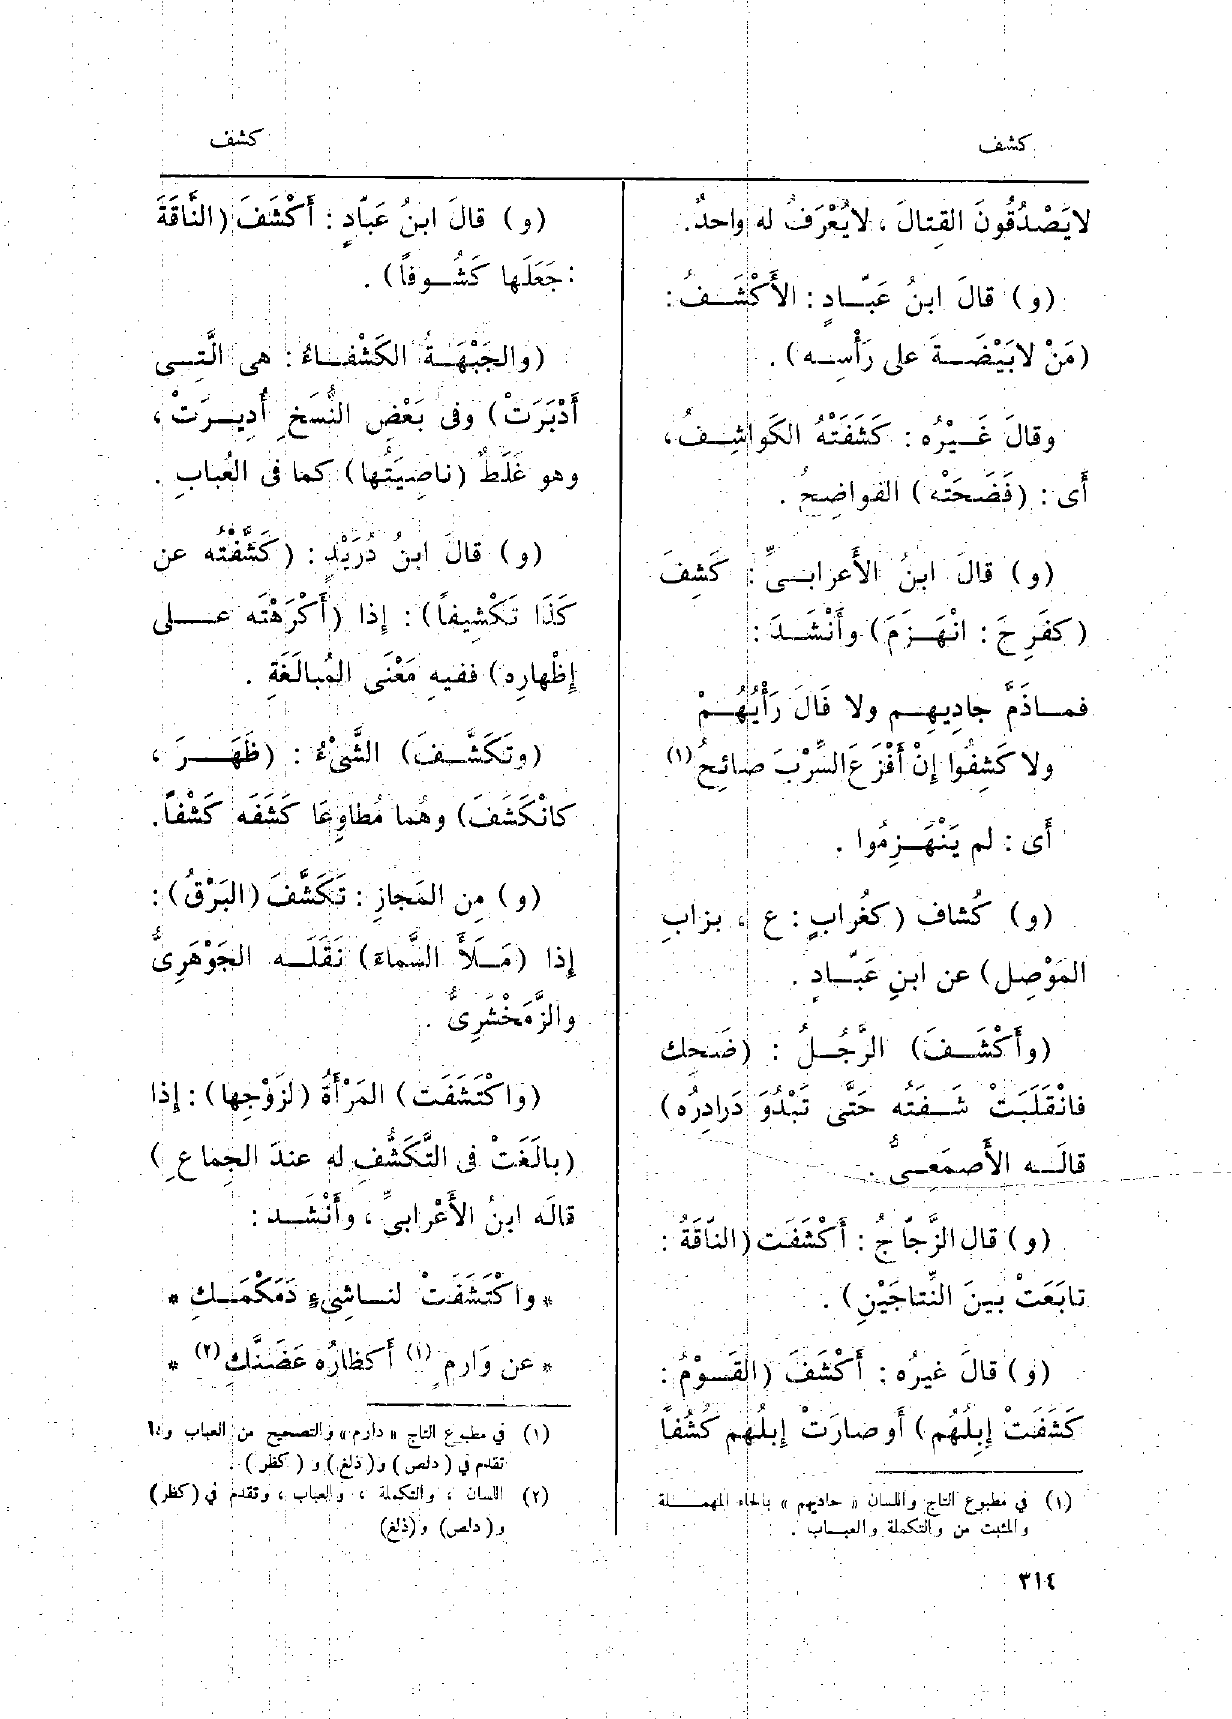 كشف
كشف
لايَصْدُقُونَ القِتالَ ، لايُعْرَفُ له واحدٌ.
(و) قالَ ابنُ عَبّـادٍ : الأَكْشَـفُ :
(مَنْ لابَيْضَـةَ على رَأْسِـه) .
وقالَ غَـيْرُه : كَشَفَتْهُ الكَواشِـفُ،
أَى : (فَضَحَتْه) الفَواضِحُ .
(و) قالَ ابنُ الأَعرابـىِّ : كَشِفَ
(كفَرِحَ : انْهَـزَمَ) وأَنْشَـدَ :
فمـاذَمَّ جادِيهِـم ولا فَالَ رَأْيُهُـمْ
ولا كَشِفُوا إِنْ أَفْزَعَ السِّرْبَ صائِحُ (١)
أَى : لم يَنْهَـزِمُوا .
(و) كُشاف (كغُرابٍ : ع ، بزابِ
المَوْصِل) عن ابنِ عَبّـادٍ .
(وأَكْشَـفَ) الرَّجُـلُ : (ضَحِك
فانْقَلَبَتْ شَـفَتُه حَتَّى تَبْدُوَ دَرادِرُه)
قالَـه الأَصمَعِـىُّ .
(و) قال الزَّجّاجُ : أَكْشَفَت (النّاقَةُ :
تابَعَتْ بينَ النِّتاجَيْنِ) .
(و) قالَ غيرُه : أَكْشَفَ (القَـوْمُ :
كَشَفَتْ إِبِلُهُم) أَو صارَتْ إِبلُهم كُشُفًا
(١) في مطبوع التاج واللسان « حاديهم » بالحاء المهمـلة
والمثبت من والتكملة والعبـاب .
٣١٤
(و) قالَ ابنُ عَبّادٍ : أَكْشَفَ (النَّاقَةَ
: جَعَلَها كَشُـوفاً) .
(والجَبْهَـةُ الكَشْفـاءُ : هى الَّتِـى
أَدْبَرَتْ) وفى بَعْضِ النُّسَخِ أُدِيـرَتْ ،
وهو غَلَطٌ (ناصِيَتُها) كما فى العُبابِ .
(و) قالَ ابنُ دُرَيْدٍ : (كَشَّفْتُه عن
كَذَا تَكْشِيفاً) : إِذا (أَكْرَهْتَه عـلى
إِظْهارِه) ففيهِ مَعْنَى المُبالَغَةِ .
(وتَكَشَّـفَ) الشَّىْءُ : (ظَهَـرَ ،
كانْكَشَفَ) وهُما مُطاوِعَا كَشَفَه كَشْفاً.
(و) مِن المَجازِ : تَكَشَّفَ (البَرْقُ) :
إِذا (مَـلَأَ السَّماءَ) نَقَلَـه الجَوْهَرِىُّ
والزَّمَخْشَرِىُّ .
(واكْتَشَفَت) المَرْأَةُ (لزَوْجِها) : إِذا
(بالَغَتْ فى التَّكَشُّفِ له عندَ الجِماعِ)
قالَه ابنُ الأَعْرابىِّ ، وأَنْشَـد :
* واكْتَشَفَتْ لنـاشِىءٍ دَمَكْمَـكِ *
* عن وَارمٍ (١) أَكظارُه عَضَنَّكِ (٢) *
(١) في مطبوع التاج « دارم» والتصحيح من العباب ومما
تقدم في (دلص) و(ذلغ) و (كظر) .
(٢) اللسان ، والتكملة ، والعباب ، وتقدم في (كظر)
و(دلص) و(ذلغ)